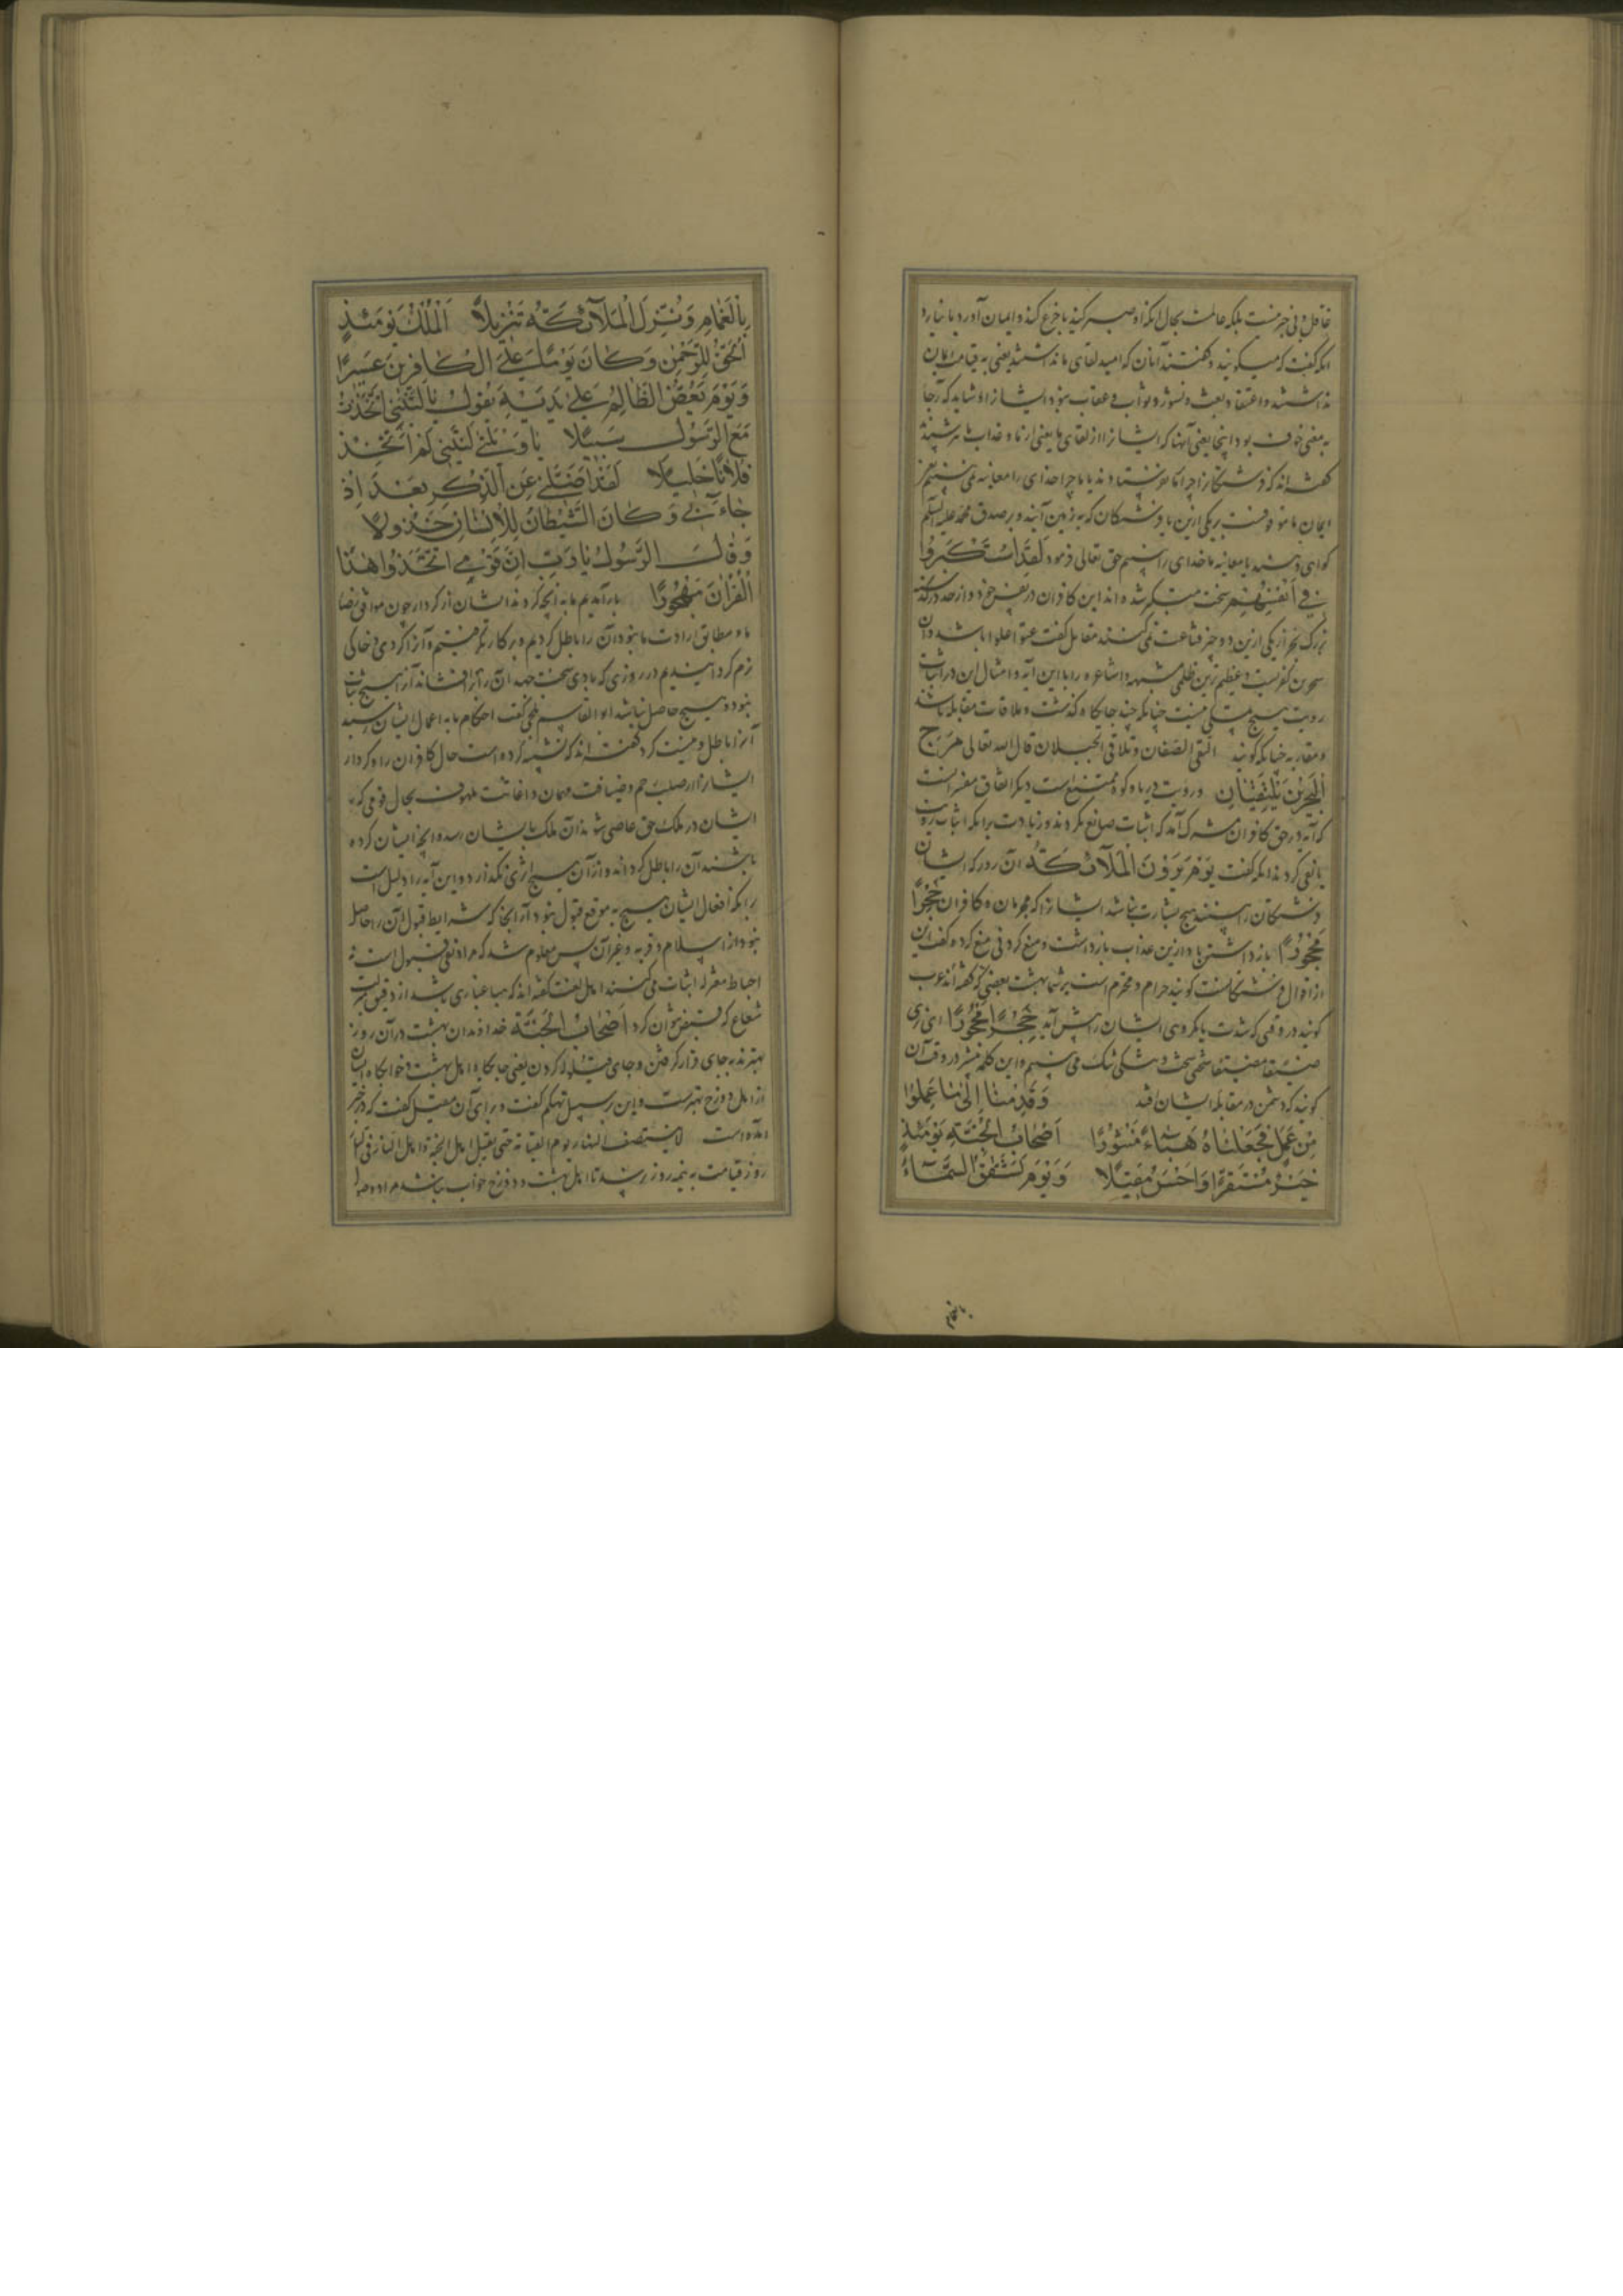 غافل و بی خبر نیست بلکه عالمست بحال آنکه او صبر کند یا جزع کند و ایمان آورد یا نیارد
آنکه گفت که میگویند و گفتند آنان که امید لقای ما نداشتند یعنی به قیامت ایمان
نداشتند و اعتقاد بعث و نشور و ثواب و عقاب نبود ایشانرا و شاید که رجا
به معنی خوف بود اینجا یعنی آنها که ایشانرا از لقای ما یعنی از ما و عذاب ما ترس نبود
گفته اند که فرشتگانرا چرا نفرستادند یا ما چرا خدای را معاینه نمی بینیم
ایمان ما موقوفست بر یکی ازین یا فرشتگان که به زمین آیند و بر صدق محمد علیه السلم
گواهی دهند یا معاینه ما خدای را بینیم حق تعالی فرمود لَقَدِ اسْتَكْبَرُوا
فِي أَنْفُسِهِمْ سخت متکبر شده اند این کافران در نفس خود و از حد درگذشته
بزرگ بجز از یکی ازین دو چیز قناعت نمی کنند مقاتل گفت عتوا علوا باشد و آن
رویت هیچ متمسکی نیست چنانکه چند جایگاه گذشت و ملاقات مقابله باشد
و مقاربه چنانکه گویند التقی الصفان و تلاقی الجبلان قال الله تعالی مَرَجَ
الْبَحْرَيْنِ يَلْتَقِيَانِ و رویت دریا و کوه ممتنع است دیگر اتفاق مفسرانست
که آیه در حق کافران مشرک آمد که اثبات صانع نکردند و زیادت برانکه اثبات رویت
یا نفی کردند آنکه گفت يَوْمَ يَرَوْنَ الْمَلَآئِكَةَ آن روز که ایشان
فرشتگان را بینند هیچ بشارت نباشد ایشانرا که مجرمان و کافران حِجْرًا
مَحْجُورًا باز داشتن باد ازین عذاب بازداشت و منع کردنی منع کرده گفت این
از اقوال فرشتگانست گویند حرام و محرم است بر شما بهشت بعضی گفته اند عرب
گویند در وقتی که شدت یا مکروهی ایشان را پیش آید حِجْرًا مَحْجُورًا
گویند که دشمن در مقابله ایشان افتد وَقَدِمْنَا إِلَىٰ مَا عَمِلُوا
مِنْ عَمَلٍ فَجَعَلْنَاهُ هَبَاءً مَنْثُورًا أَصْحَابُ الْجَنَّةِ يَوْمَئِذٍ
خَيْرٌ مُسْتَقَرًّا وَأَحْسَنُ مَقِيلًا وَيَوْمَ تَشَقَّقُ السَّمَآءُ
بالغمام
بِالْغَمَامِ وَنُزِّلَ الْمَلَآئِكَةُ تَنْزِيلًا الْمُلْكُ يَوْمَئِذٍ
الْحَقُّ لِلرَّحْمٰنِ وَكَانَ يَوْمًا عَلَى الْكَافِرِينَ عَسِيرًا
وَيَوْمَ يَعَضُّ الظَّالِمُ عَلَىٰ يَدَيْهِ يَقُولُ يَا لَيْتَنِي اتَّخَذْتُ
مَعَ الرَّسُولِ سَبِيلًا يَا وَيْلَتَىٰ لَيْتَنِي لَمْ أَتَّخِذْ
فُلَانًا خَلِيلًا لَقَدْ أَضَلَّنِي عَنِ الذِّكْرِ بَعْدَ إِذْ
جَاءَنِي وَكَانَ الشَّيْطَانُ لِلْإِنْسَانِ خَذُولًا
وَقَالَ الرَّسُولُ يَا رَبِّ إِنَّ قَوْمِي اتَّخَذُوا هٰذَا
الْقُرْآنَ مَهْجُورًا باز آمدیم ما به آنچه کردند ایشان از کردار چون موافق رضا
ما و مطابق ارادت ما نبود آن را باطل کردیم و بر کار نگرفتیم و آنرا گردی و خاکی
نرم گردانیدیم در روزی که بادی سخت جهد آن را برافشاند آنرا هیچ ثبات
نبود و هیچ حاصل نباشد ابو القاسم بلخی گفت احکام ما به اعمال ایشان رسید
آنرا باطل و نیست کرد گفته اند که تشبیه کرده است حال کافران را و کردار
ایشانرا از صلت رحم و ضیافت مهمان و اغاثت ملهوف بحال قومی که
ایشان در ملک حق عاصی شوند آن ملک با ایشان رسد و آنچه ایشان کرده
باشند آن را باطل کرداند و از آن هیچ اثری نگذارد و این آیه را دلیل است
برانکه افعال ایشان هیچ به موقع قبول نبود از آنجا که شرایط قبول آن را حاصل
نبود از اسلام و قربه و غیر آن پس معلوم شد که مراد نفی قبول است نه
احباط معتزله اثبات می کنند اهل لغت گفته اند که هبا غباری باشد از دقیق
شعاع که قبض نتوان کرد أَصْحَابُ الْجَنَّةِ خداوندان بهشت در آن روز
بهترند به جای قرار گرفتن و جای قیلوله کردن یعنی جایگاه اهل بهشت و خوابگاه ایشان
از اهل دوزخ بهترست و این بر سبیل تهکم گفت و برای آن مقیل گفت که در خبر
آمده است لا ینتصف النهار یوم القیامة حتی یقیل اهل الجنة و اهل النار فی النار
روز قیامت به نیمه روز نرسد تا اهل بهشت و دوزخ خواب نباشد مراد